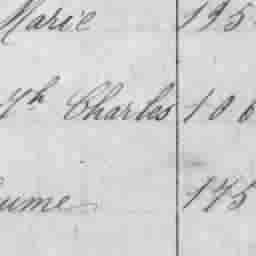 Marie 195
Jh Charles 106
ume 175